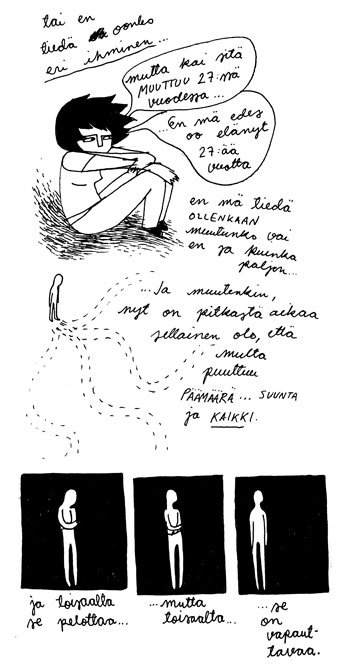 tai en
tiedä oonko
eri ihminen...
mutta kai sitä
MUUTTUU 27:ssä
vuodessa...
...En mä edes
oo elänyt
27:ää
vuotta
en mä tiedä
OLLENKAAN
muutunko vai
en ja kuinka
paljon...
...Ja muutenkin,
nyt on pitkästä aikaa
sellainen olo, että
multa
puuttuu
PÄÄMÄÄRÄ... SUUNTA
ja KAIKKI.
ja toisaalta
se pelottaa...
...mutta
toisaalta...
...se
on
vapaut-
tavaa.